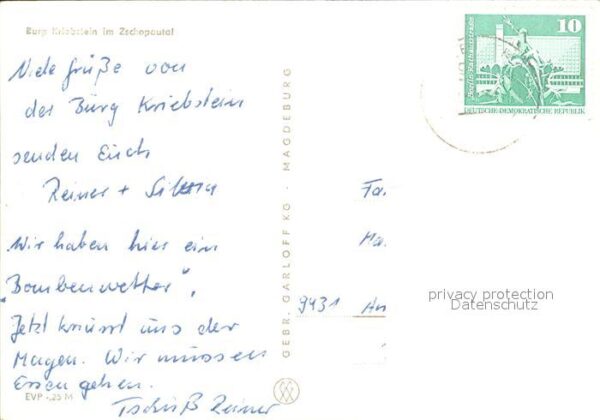 Burg Kriebstein im Zschopautal
Viele Grüße von
der Burg Kriebstein
senden Euch
Reiner + Silvia
Wir haben hier ein
"Bombenwetter",
Jetzt knurrt uns der
Magen. Wir müssen
Essen gehen.
Tschüß Reiner
EVP -,25 M
GEBR. GARLOFF KG · MAGDEBURG
10
Berlin, Rathausstraße
DEUTSCHE DEMOKRATISCHE REPUBLIK
Fa.
Ma.
9431 An
privacy protection
Datenschutz